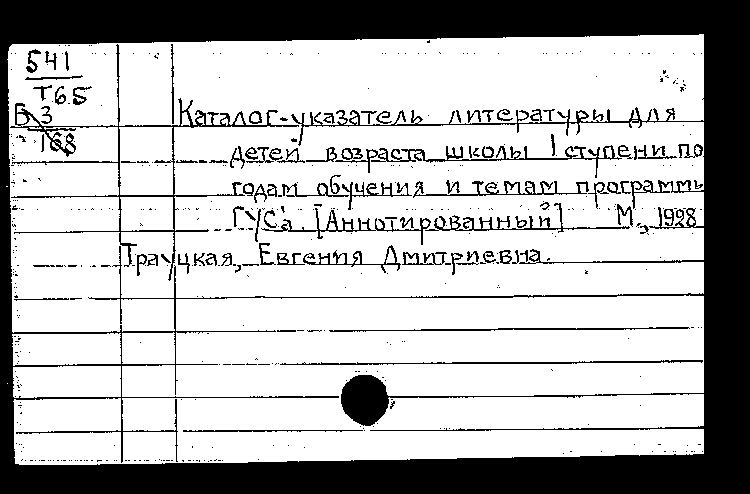 541
Т65
Б 3
168
Каталог-указатель литературы для
детей возраста школы I ступени по
годам обучения и темам программы
ГУС'а. [Аннотированный] М., 1928
Трауцкая, Евгения Дмитриевна.